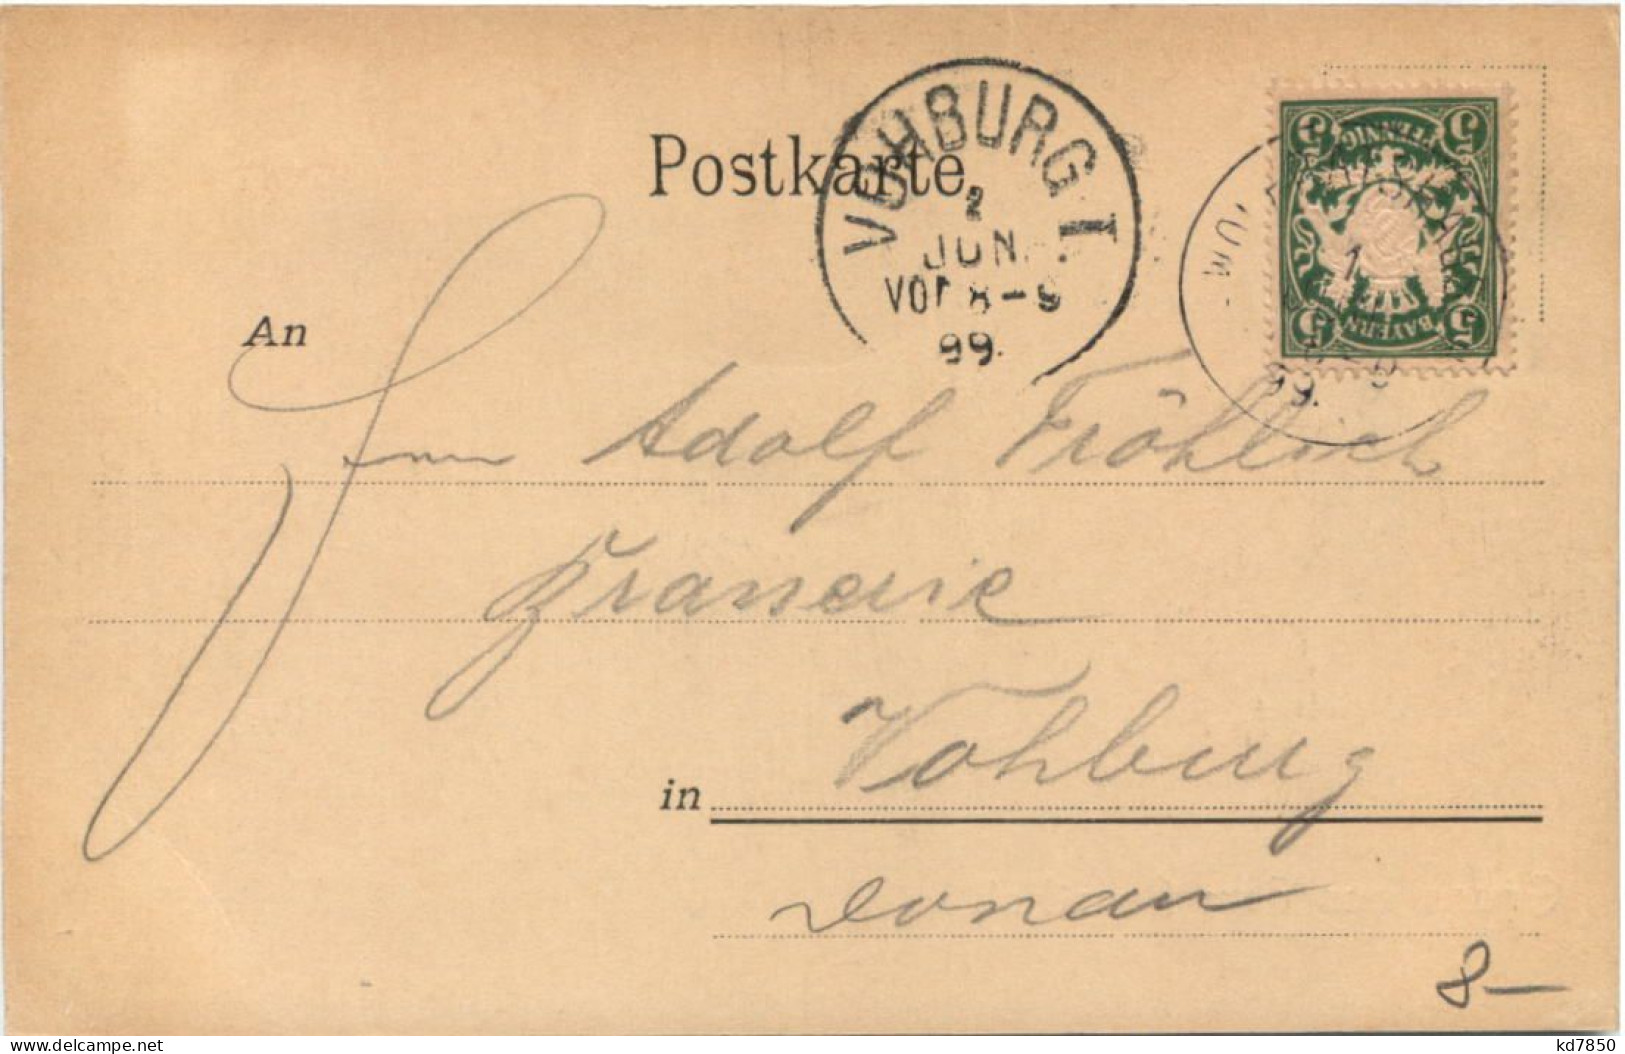 Postkarte
VOHBURG I
2
JUN.
VOR 8-9
99.
5 PFENNIG 5
5 BAYERN 5
1
99.
An
Herrn Adolf Fröhlich
Brauerei
in Vohburg
Donau
8-
delcampe.net
kd7850